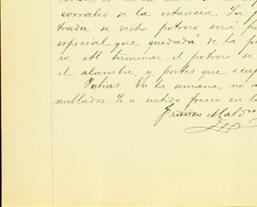 corrales de la estancia. La
trada de dicho potrero será p
especial que quedará de la p
ro Al terminar el potrero se
el alambre, y postes que ocup
En la semana, no
nublados. y sintido fresco en la
Franco Mald